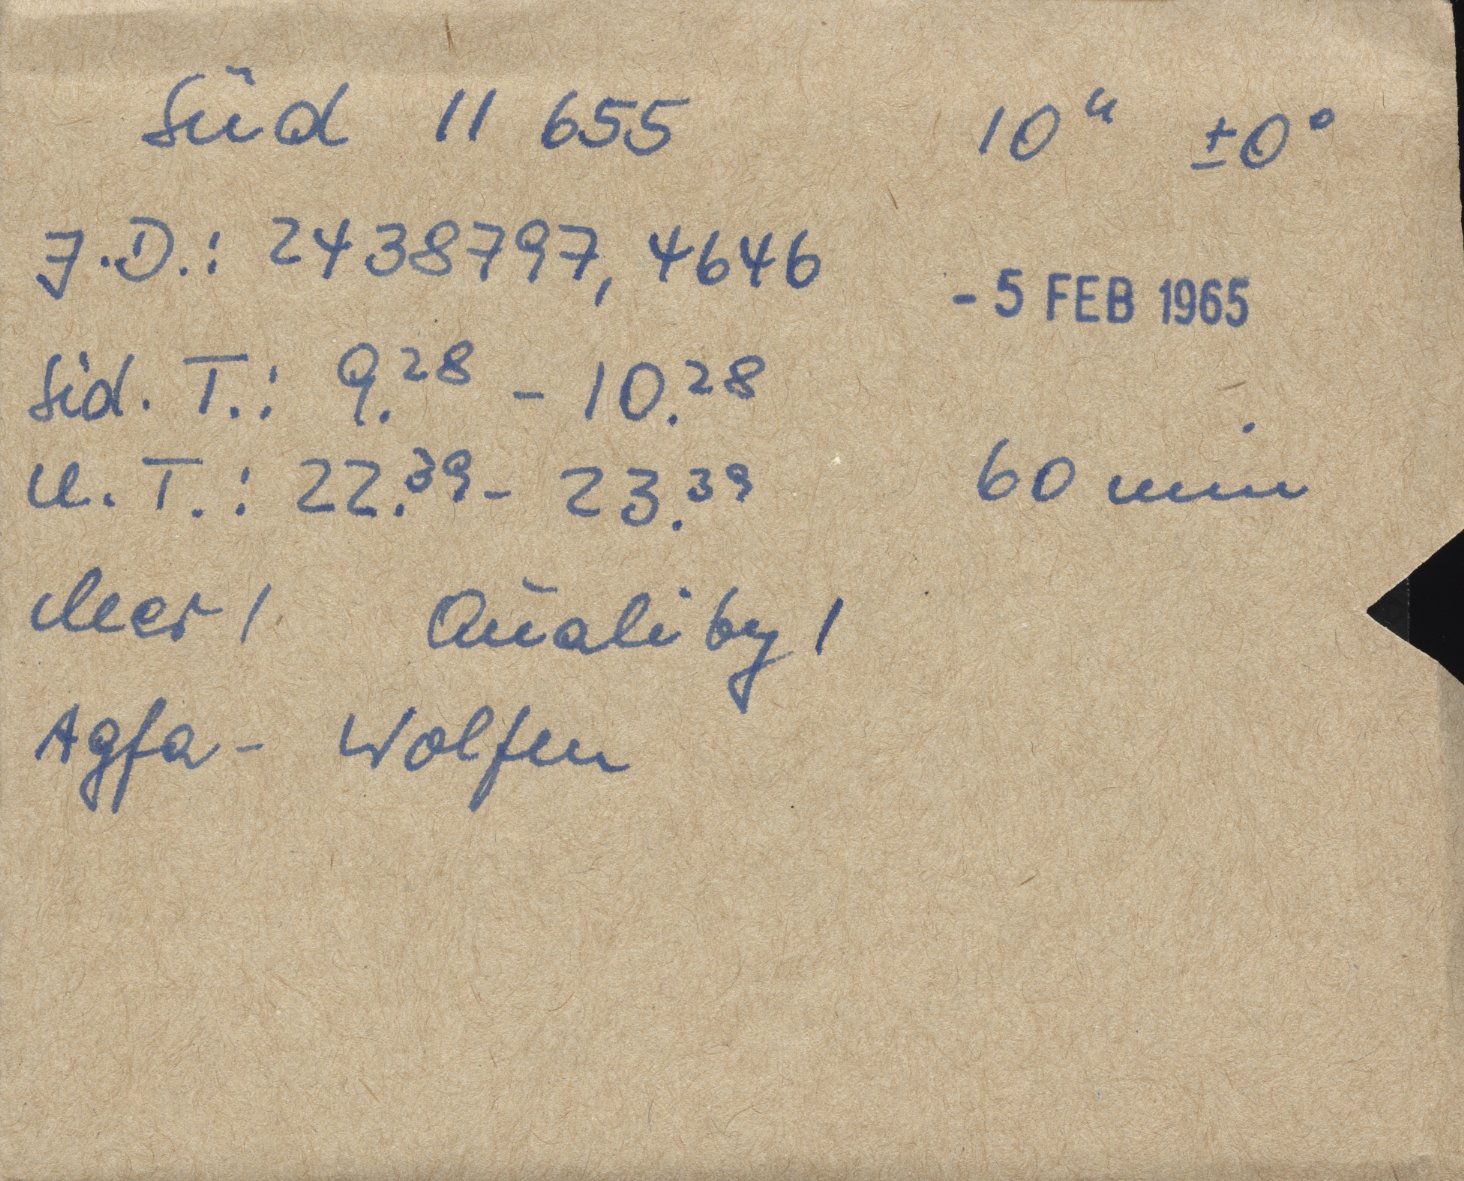 Süd 11 655 10ʰ ±0°
J.D.: 2438797,4646
- 5 FEB 1965
Sid. T.: 9.²⁸ - 10.²⁸
U. T.: 22.³⁹ - 23.³⁹ 60 min
clear 1 Quality 1
Agfa - Wolfen